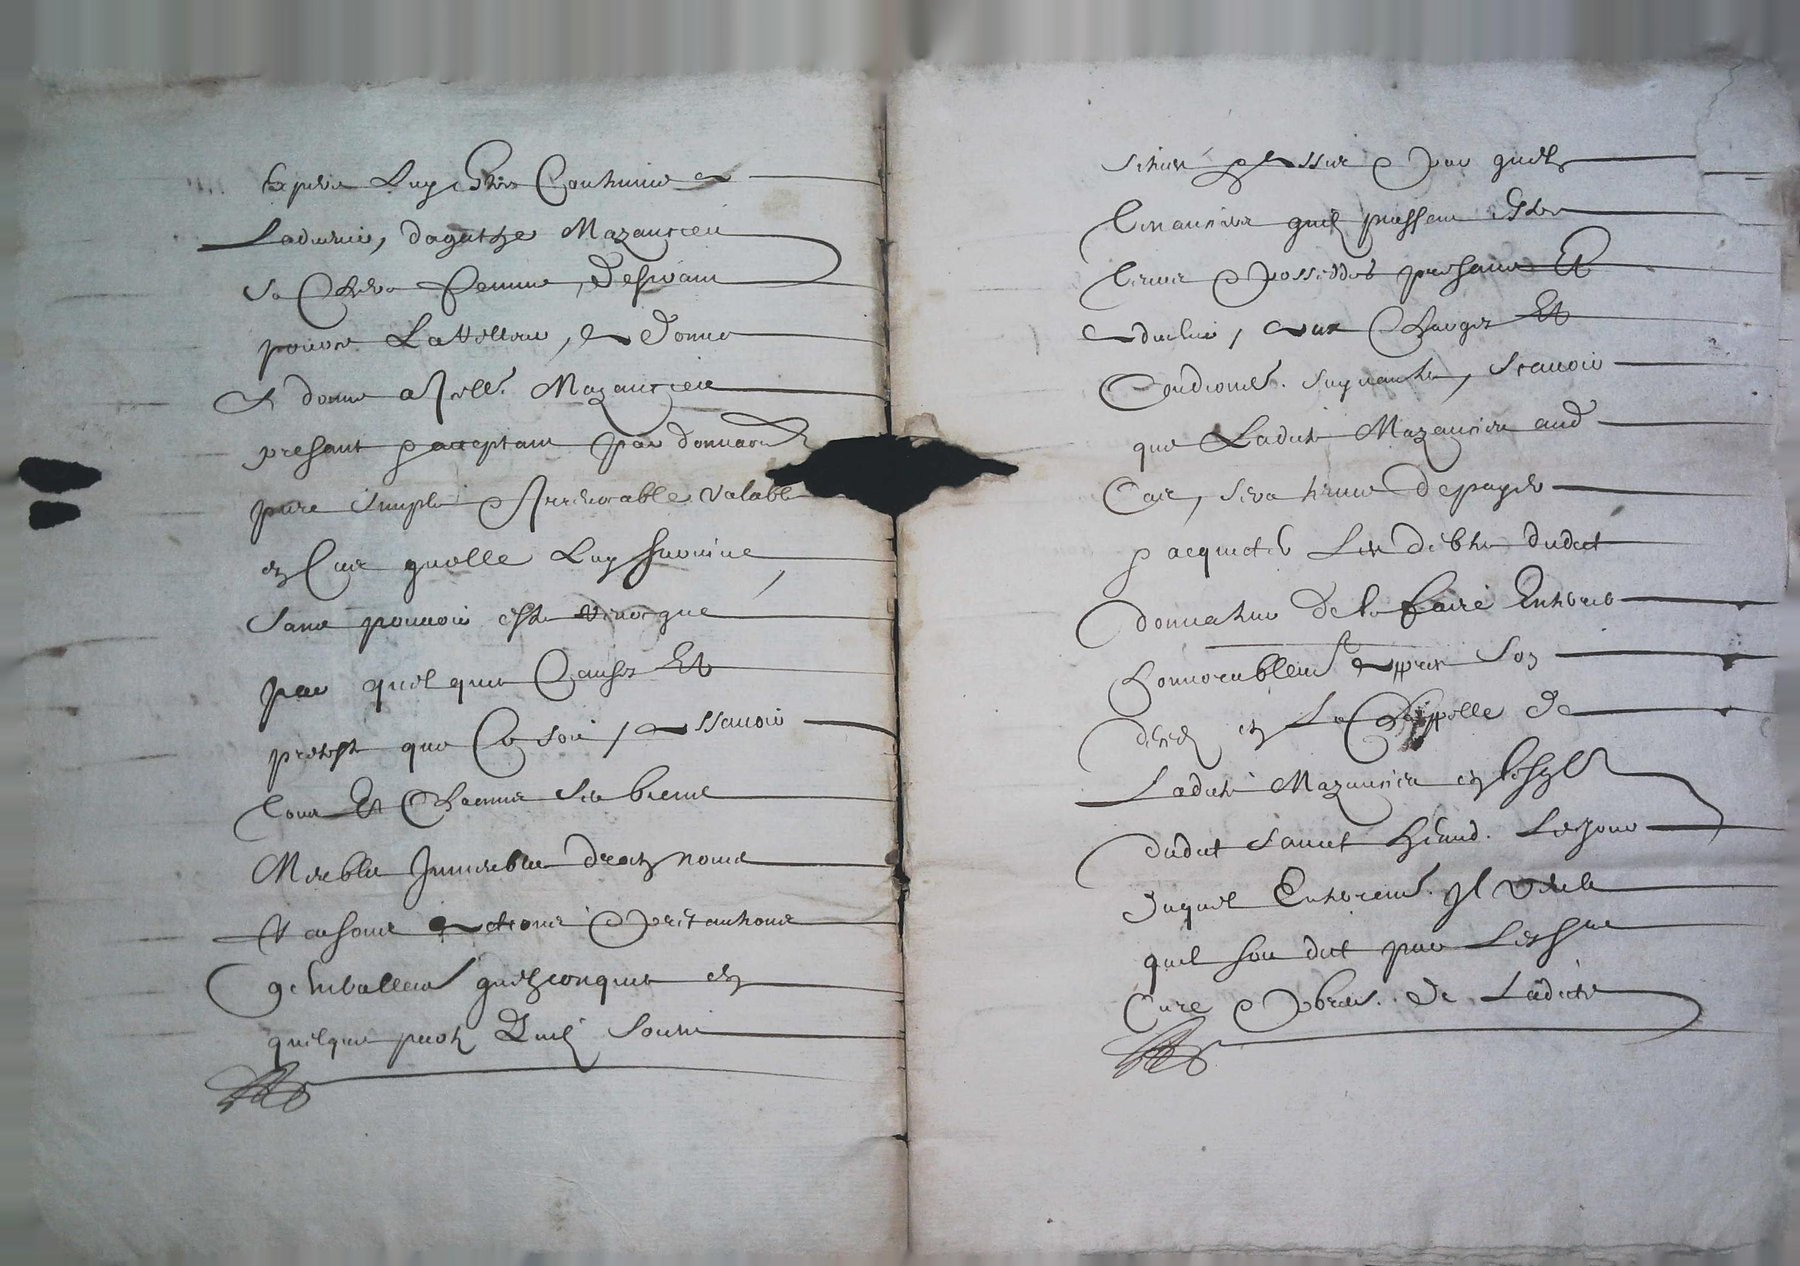 luy estre Continue
Ladvenir, dagathe Mazaurieu
sa Chere femme, desirant
donne
Et donne a Icelle Mazaurieu
presant & acceptant par donnaon
pure simple & Irrevocable valable
en Cas quelle luy survive
sans pouvoir estre revoquee
par quelque Causes Et
pretexte que Ce soit, assavoir
tous Et Chacuns ses biens
Meubles Immeubles droitz noms
Et raisons actions & pretantions
Generallement quelzconques en
quelque part quilz soient
scitues & assis & par quelz
tenanciers quilz puissent estre
tenus & possedes presants Et
advenir, aux Charges Et
Conditions suyvantes, scavoir
que Ladicte Mazaurieu aud
Cas, sera tenue de payer
& acquicter les debtes dudict
donnateur de le faire Enterrer
honnorablement appres son
deces en la Chappelle de
Ladicte Mazaurieu en lesglise
dudict Sainct lejour
duquel Enterrement Il veult
quil soit dict par les sieurs
Cure & pbres de Ladicte